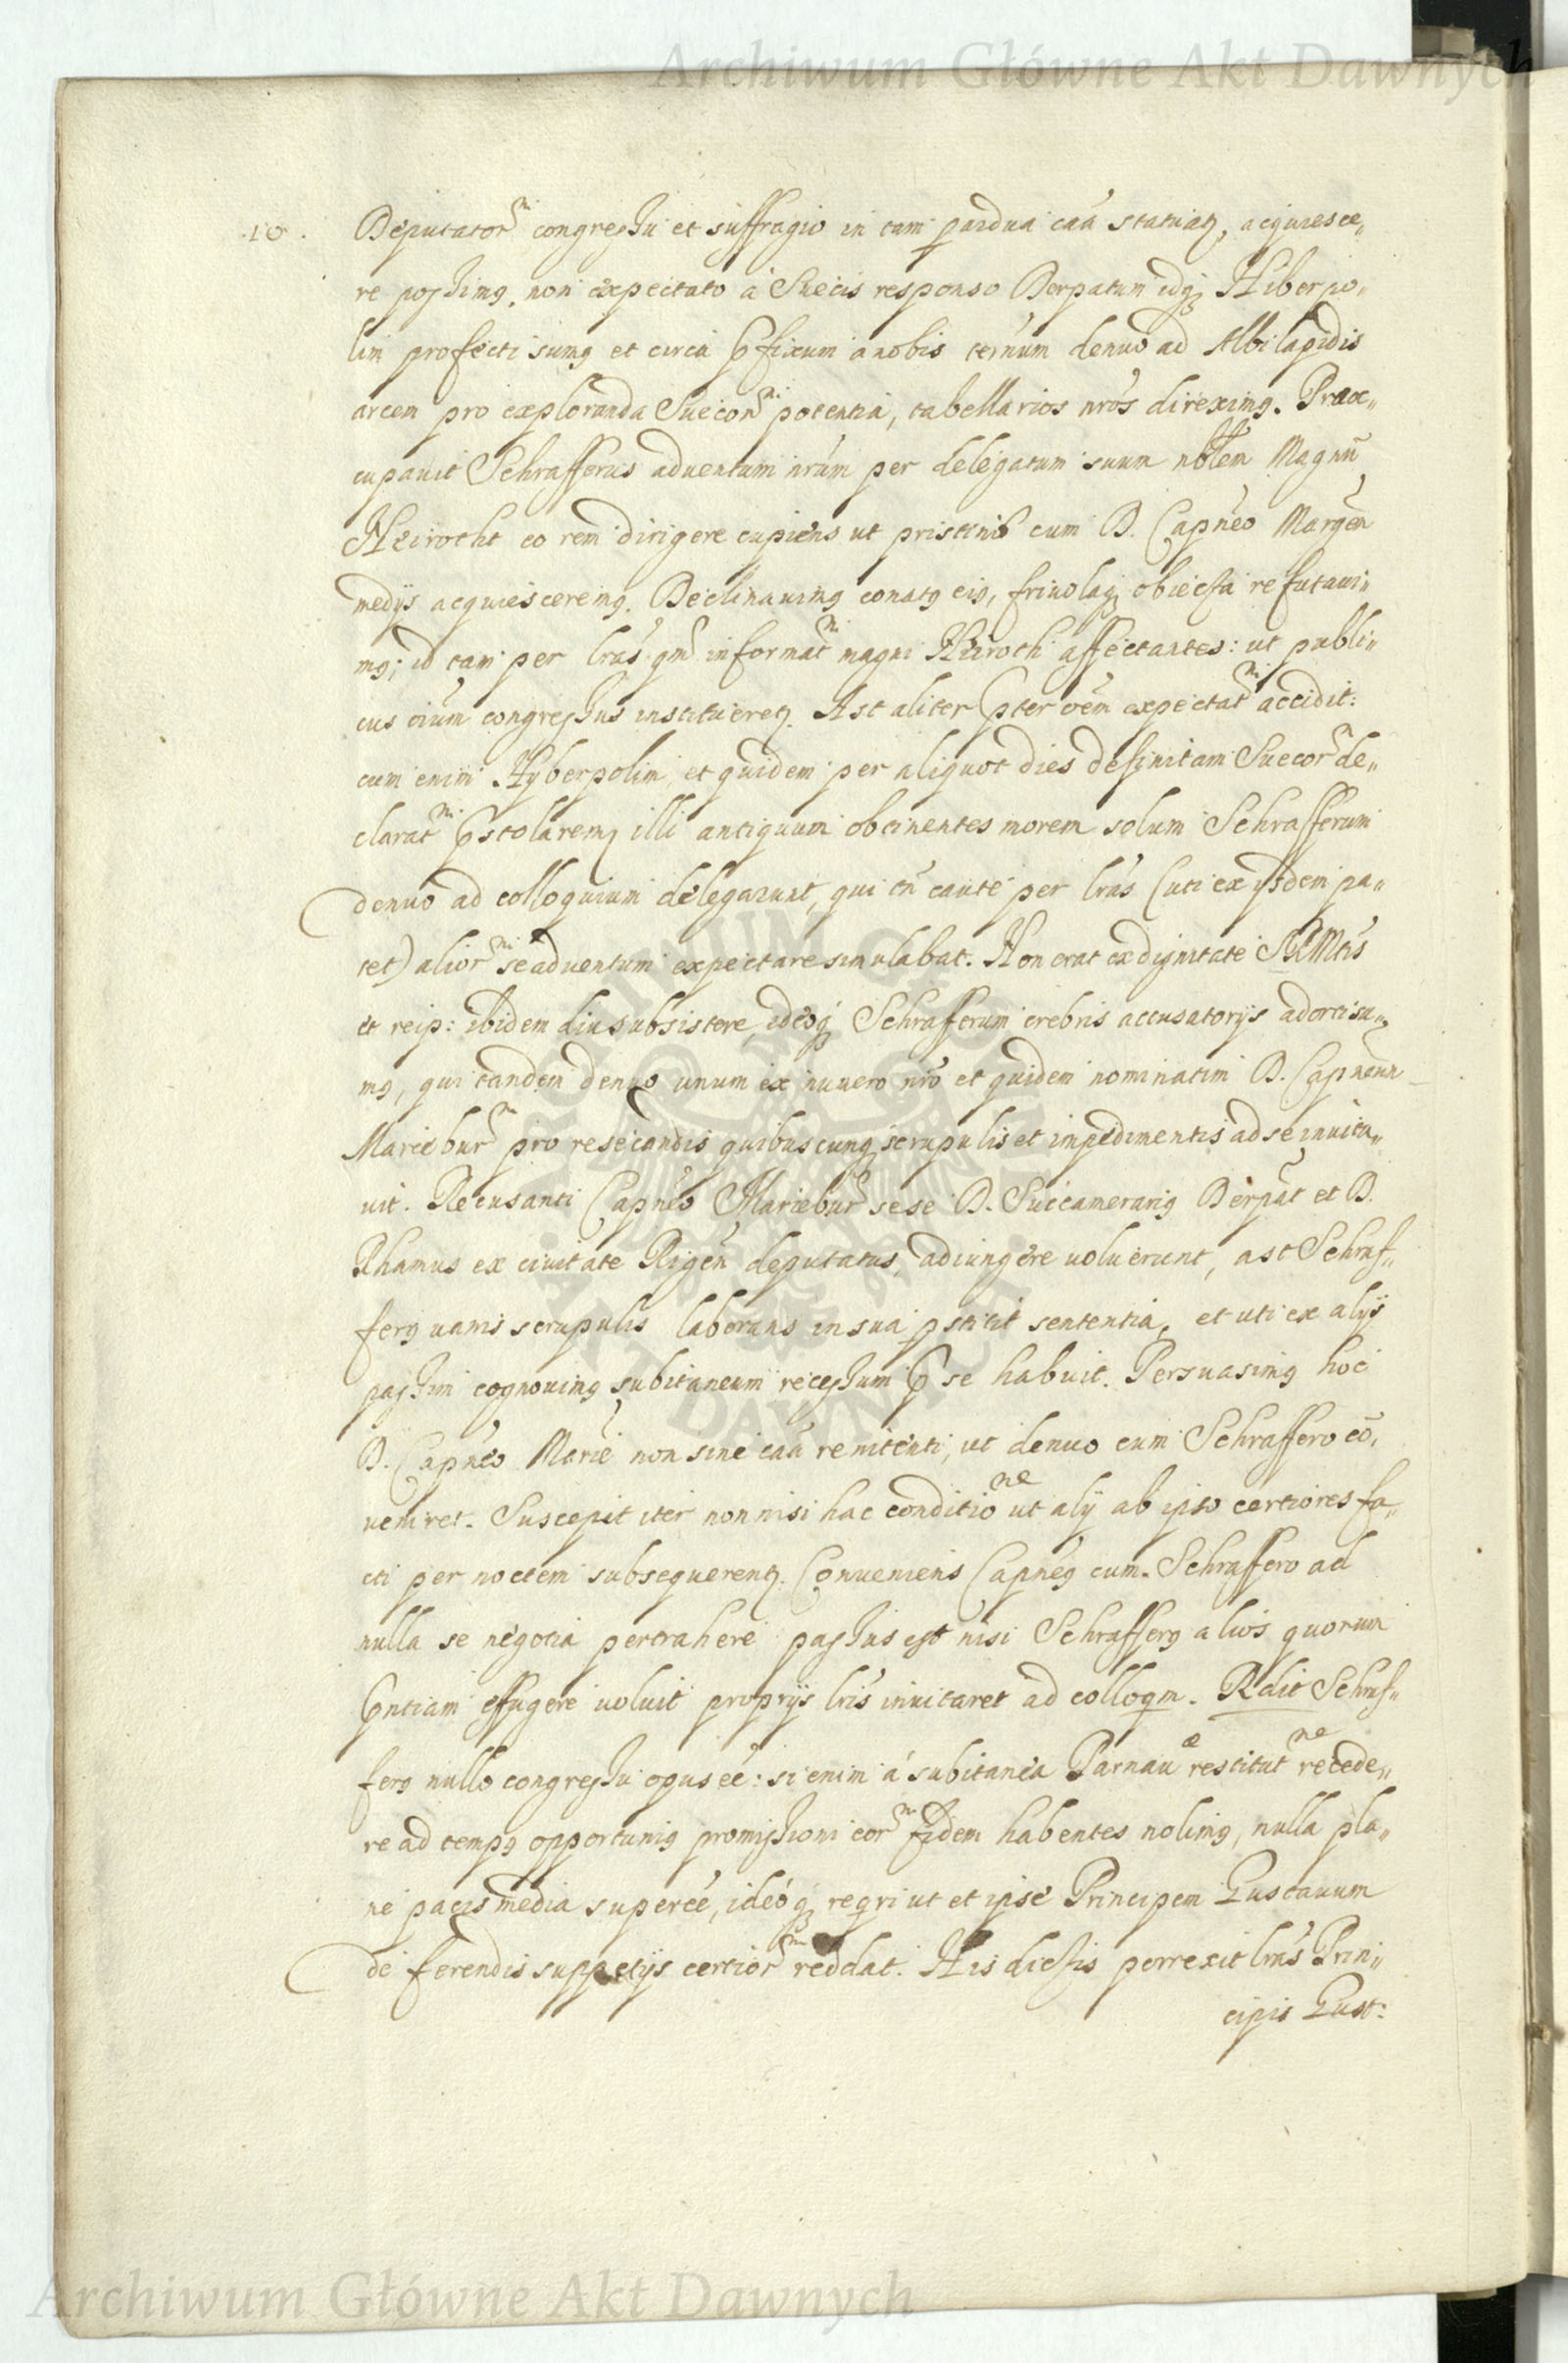 Archiwum Główne Akt Dawnych
10.
Deputatorm congressu et suffragio in tam p ardua caã statuatq, acquiesce„
re possimq, non expectato à Suecis responso Derpatum idq Hiberpo„
lim profecti sumq et circa p̃fixum a nobis terñum denuo ad Albi lapidis
arcem pro exploranda Sueconm potentia, tabellarios nrõs direximq. Praeoc„
cupauit Schrafferus aduentum nrũm per delegatum suum nblem Magnũ
Neirotht eo rem dirigere cupiens ut pristinis cum D. Capñeo Margeñ
medijs acquiesceremq. Declinauimq conatq eiq, friuolaq obiecta refutaui„
mq; id tam per lrãs qm̃ informatm magni Neiroth affectantes: ut publi„
cus oiũm congressus instituereq. Ast aliter p̃ter oẽm expectatm accidit:
cum enim Hyberpolim, et quidem per aliquot dies definitam Suecor de„
claratm p̃stolaremq illi antiquum obtinentes morem solum Schrafferum
denuo ad colloquium delegarunt, qui tñ caute per lrãs (uti ex ijsdem pa„
tet) aliorm se aduentum expectare simulabat. Non erat ex dignitate SRMtis
et reip: ibidem diu subsistere, ideoq Schrafferum crebris accusatorijs adorti su„
mq, qui tandem denuo unum ex numero nrõ et quidem nominatim D. Capneum
Mariæburm pro resecandis quibuscunq scrupulis et impedimentis ad se inuita„
uit. Recusanti Capñeo Mariæbur sese D. Succamerariq Derpat et D.
Rhamus ex ciuitate Rigeñ deputatus, adiungere uoluerunt, ast Schraf„
ferq uanis scrupulis laborans in sua pstitit sententia, et uti ex alijs
passim cognouimq subitaneum recessum p̃ se habuit. Persuasimq hoc
D. Capñeo Mariæ non sine caã renitenti, ut denuo cum Schraffero cõ„
ueniret. Suscepit iter non nisi hac conditione ut alij ab ipso certiores fa„
cti per noctem subsequerentq. Conueniens Capñeq cum Schraffero ad
nulla se negotia pertrahere passus est nisi Schrafferq alios quorum
p̃ntiam effugere uoluit proprijs lrĩs inuitaret ad colloqm. Rdit Schraf„
ferq nullo congressu opus eẽ: si enim á subitanea Parnauæ restitutne recede„
re ad tempq opportuniq promissioni eorm fidem habentes nolimq, nulla pla„
ne pacis media supereẽ, ideóq reqri ut et ipse Principem Gustauum
de ferendis suppetijs certiorm reddat. His dictis perrexit lrãs Prin„
cipis Gust:
Archiwum Główne Akt Dawnych